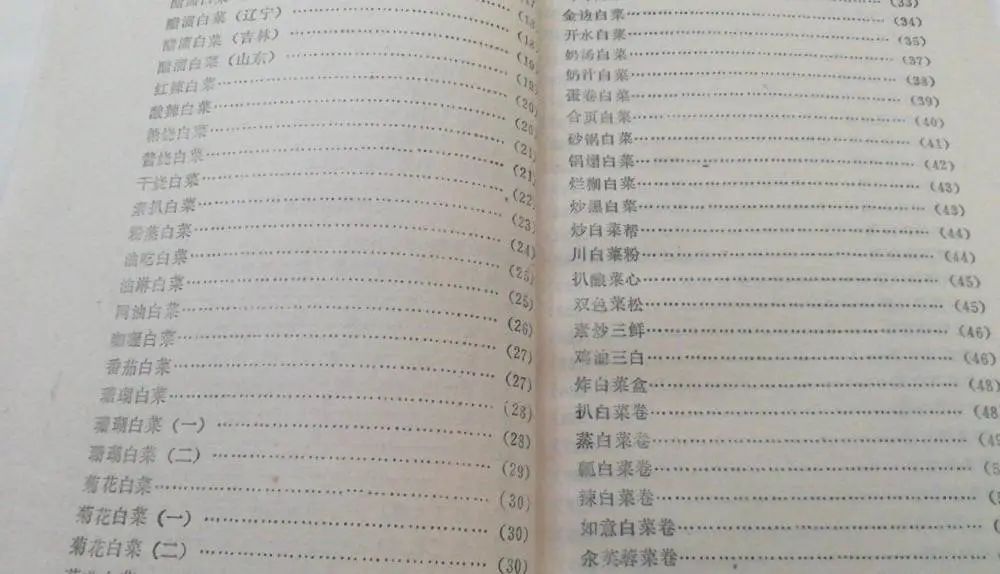 醋溜白菜（辽宁）……(18)
醋溜白菜（吉林）……(19)
醋溜白菜（山东）……(19)
红辣白菜……(20)
酸辣白菜……(20)
糖烧白菜……(21)
酱烧白菜……(21)
干烧白菜……(22)
素扒白菜……(23)
粉蒸白菜……(24)
油吃白菜……(25)
油淋白菜……(25)
网油白菜……(26)
咖喱白菜……(27)
番茄白菜……(27)
珊瑚白菜……(28)
珊瑚白菜（一）……(28)
珊瑚白菜（二）……(29)
菊花白菜……(30)
菊花白菜（一）……(30)
菊花白菜（二）……(30)
(33)
金边白菜……(34)
开水白菜……(35)
奶汤白菜……(37)
奶汁白菜……(38)
蛋卷白菜……(39)
合页白菜……(40)
砂锅白菜……(41)
锅塌白菜……(42)
烂糊白菜……(43)
炒黑白菜……(43)
炒白菜帮……(44)
川白菜粉……(44)
扒酿菜心……(45)
双色菜松……(45)
素炒三鲜……(46)
鸡油三白……(46)
炸白菜盒……(48)
扒白菜卷……(48
蒸白菜卷……(49
瓤白菜卷……
辣白菜卷……
如意白菜卷……
汆芙蓉菜卷……